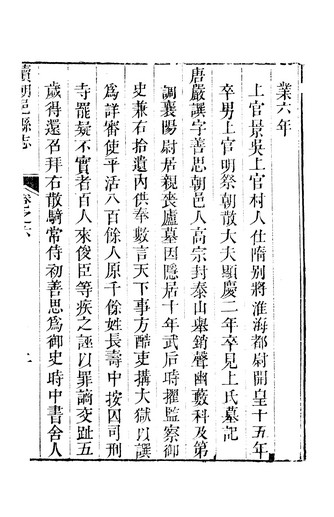 業六年
上官景吳上官村人仕隋別將淮海都尉開皇十五年
卒男上官明祭朝散大夫顯慶二年卒見上氏墓記
唐嚴譔字善思朝邑人高宗封泰山舉銷聲幽藪科及第
調襄陽尉居親喪廬墓因隱居十年武后時擢監察御
史兼右拾遺內供奉數言天下事方酷吏搆大獄以譔
爲詳審使平活八百餘人原千餘姓長壽中按囚司刑
寺罷疑不實者百人來俊臣等疾之誣以罪謫交趾五
歲得還召拜右散騎常侍初善思爲御史時中書舍人
續朝邑縣志
卷之六
上